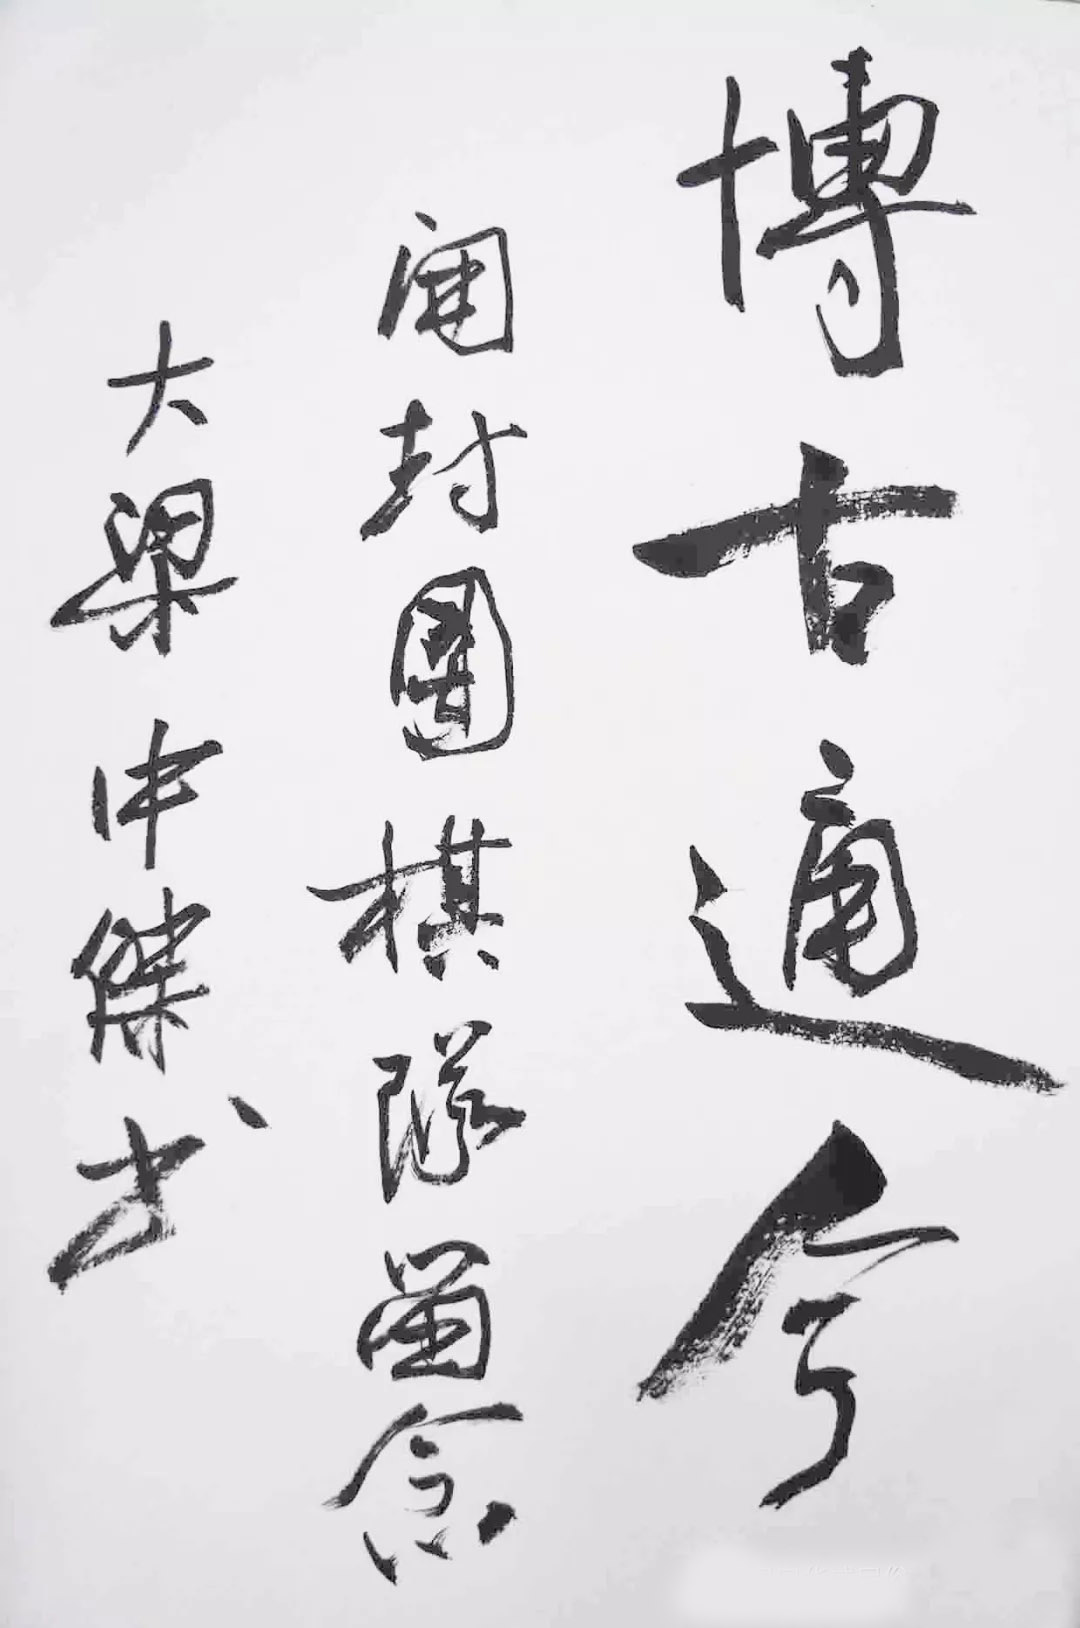 博古通今
開封圍棋隊留念
大梁申傑书